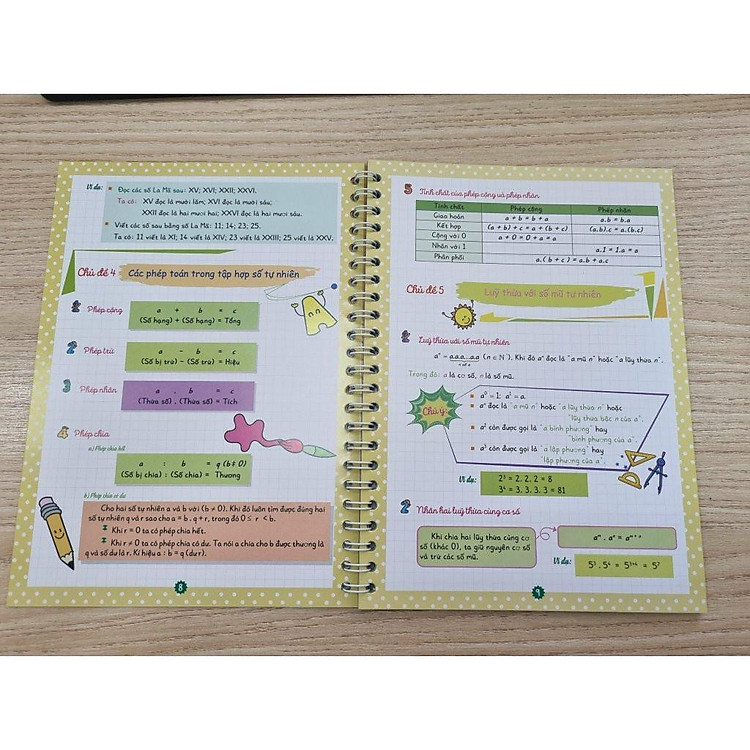 Ví dụ:
Đọc các số La Mã sau: XV; XVI; XXII; XXVI.
Ta có: XV đọc là mười lăm; XVI đọc là mười sáu;
XXII đọc là hai mươi hai; XXVI đọc là hai mươi sáu.
Viết các số sau bằng số La Mã: 11; 14; 23; 25.
Ta có: 11 viết là XI; 14 viết là XIV; 23 viết là XXIII; 25 viết là XXV.
Chủ đề 4 Các phép toán trong tập hợp số tự nhiên
Phép cộng
a + b = c
(Số hạng) + (Số hạng) = Tổng
2 Phép trừ
a - b = c
(Số bị trừ) - (Số trừ) = Hiệu
3 Phép nhân
a . b = c
(Thừa số) . (Thừa số) = Tích
4 Phép chia
a) Phép chia hết
a : b = q (b ≠ 0)
(Số bị chia) : (Số chia) = Thương
b) Phép chia có dư
Cho hai số tự nhiên a và b với (b ≠ 0). Khi đó luôn tìm được đúng hai
số tự nhiên q và r sao cho a = b . q + r, trong đó 0 ≤ r < b.
Khi r = 0 ta có phép chia hết.
Khi r ≠ 0 ta có phép chia có dư. Ta nói a chia cho b được thương là
q và số dư là r. Kí hiệu a : b = q (dư r).
8
5 Tính chất của phép cộng và phép nhân
Tính chất Phép cộng Phép nhân
Giao hoán a + b = b + a a.b = b.a
Kết hợp (a + b) + c = a + (b + c) (a.b).c = a.(b.c)
Cộng với 0 a + 0 = 0 + a = a
Nhân với 1 a.1 = 1.a = a
Phân phối a.(b + c) = a.b + a.c
Chủ đề 5 Luỹ thừa với số mũ tự nhiên
Luỹ thừa với số mũ tự nhiên
aⁿ = a.a.a...a.a (n ∈ N*). Khi đó aⁿ đọc là "a mũ n" hoặc "a lũy thừa n".
Trong đó: a là cơ số, n là số mũ.
Chú ý:
a⁰ = 1; a¹ = a.
aⁿ đọc là "a mũ n" hoặc "a lũy thừa n" hoặc
"lũy thừa bậc n của a".
a² còn được gọi là "a bình phương" hay
"bình phương của a".
a³ còn được gọi là "a lập phương" hay
"lập phương của a".
Ví dụ:
2³ = 2. 2. 2 = 8
3⁴ = 3. 3. 3. 3 = 81
2 Nhân hai luỹ thừa cùng cơ số
Khi chia hai lũy thừa cùng cơ
số (khác 0), ta giữ nguyên cơ số
và trừ các số mũ.
Ví dụ:
9